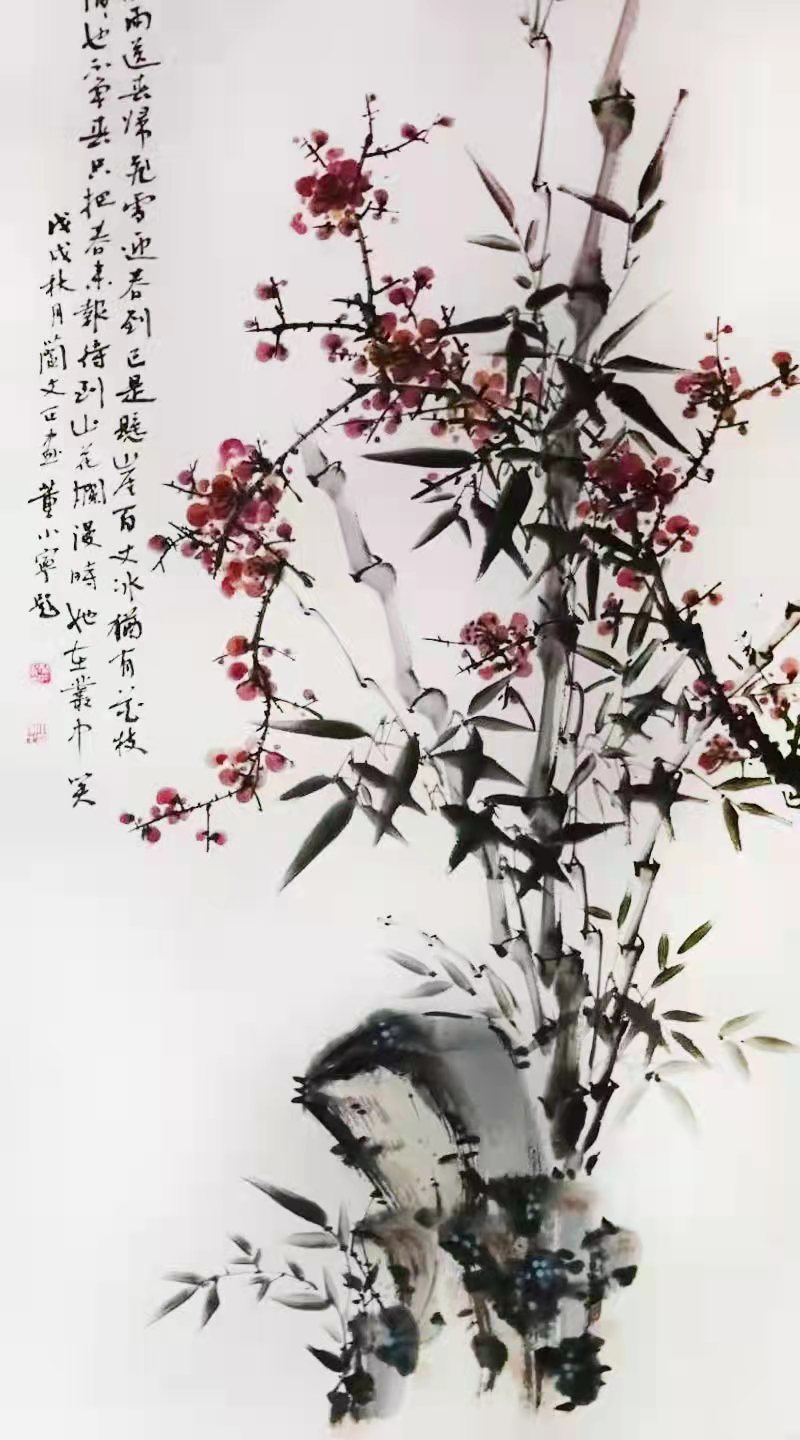 雨送春歸飛雪迎春到已是懸崖百丈冰猶有花枝
俏也不爭春只把春來報待到山花爛漫時她在叢中笑
戊戌秋月 文正畫 董小寧題